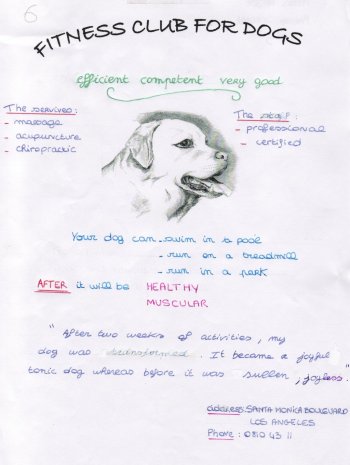 6
FITNESS CLUB FOR DOGS
efficient competent very good
The servives:
- massage
- acupuncture
- chiropractic
The staff:
- proffessional
- certified
Your dog can - swim in a pool
- run on a treadmill
- run in a park
AFTER it will be HEALTHY
MUSCULAR
" After two weeks of activities, my
dog was transformed. It became a joyful
tonic dog whereas before it was sullen, joyless."
address: SANTA MONICA BOULEVARD
LOS ANGELES
Phone: 0810 43 11